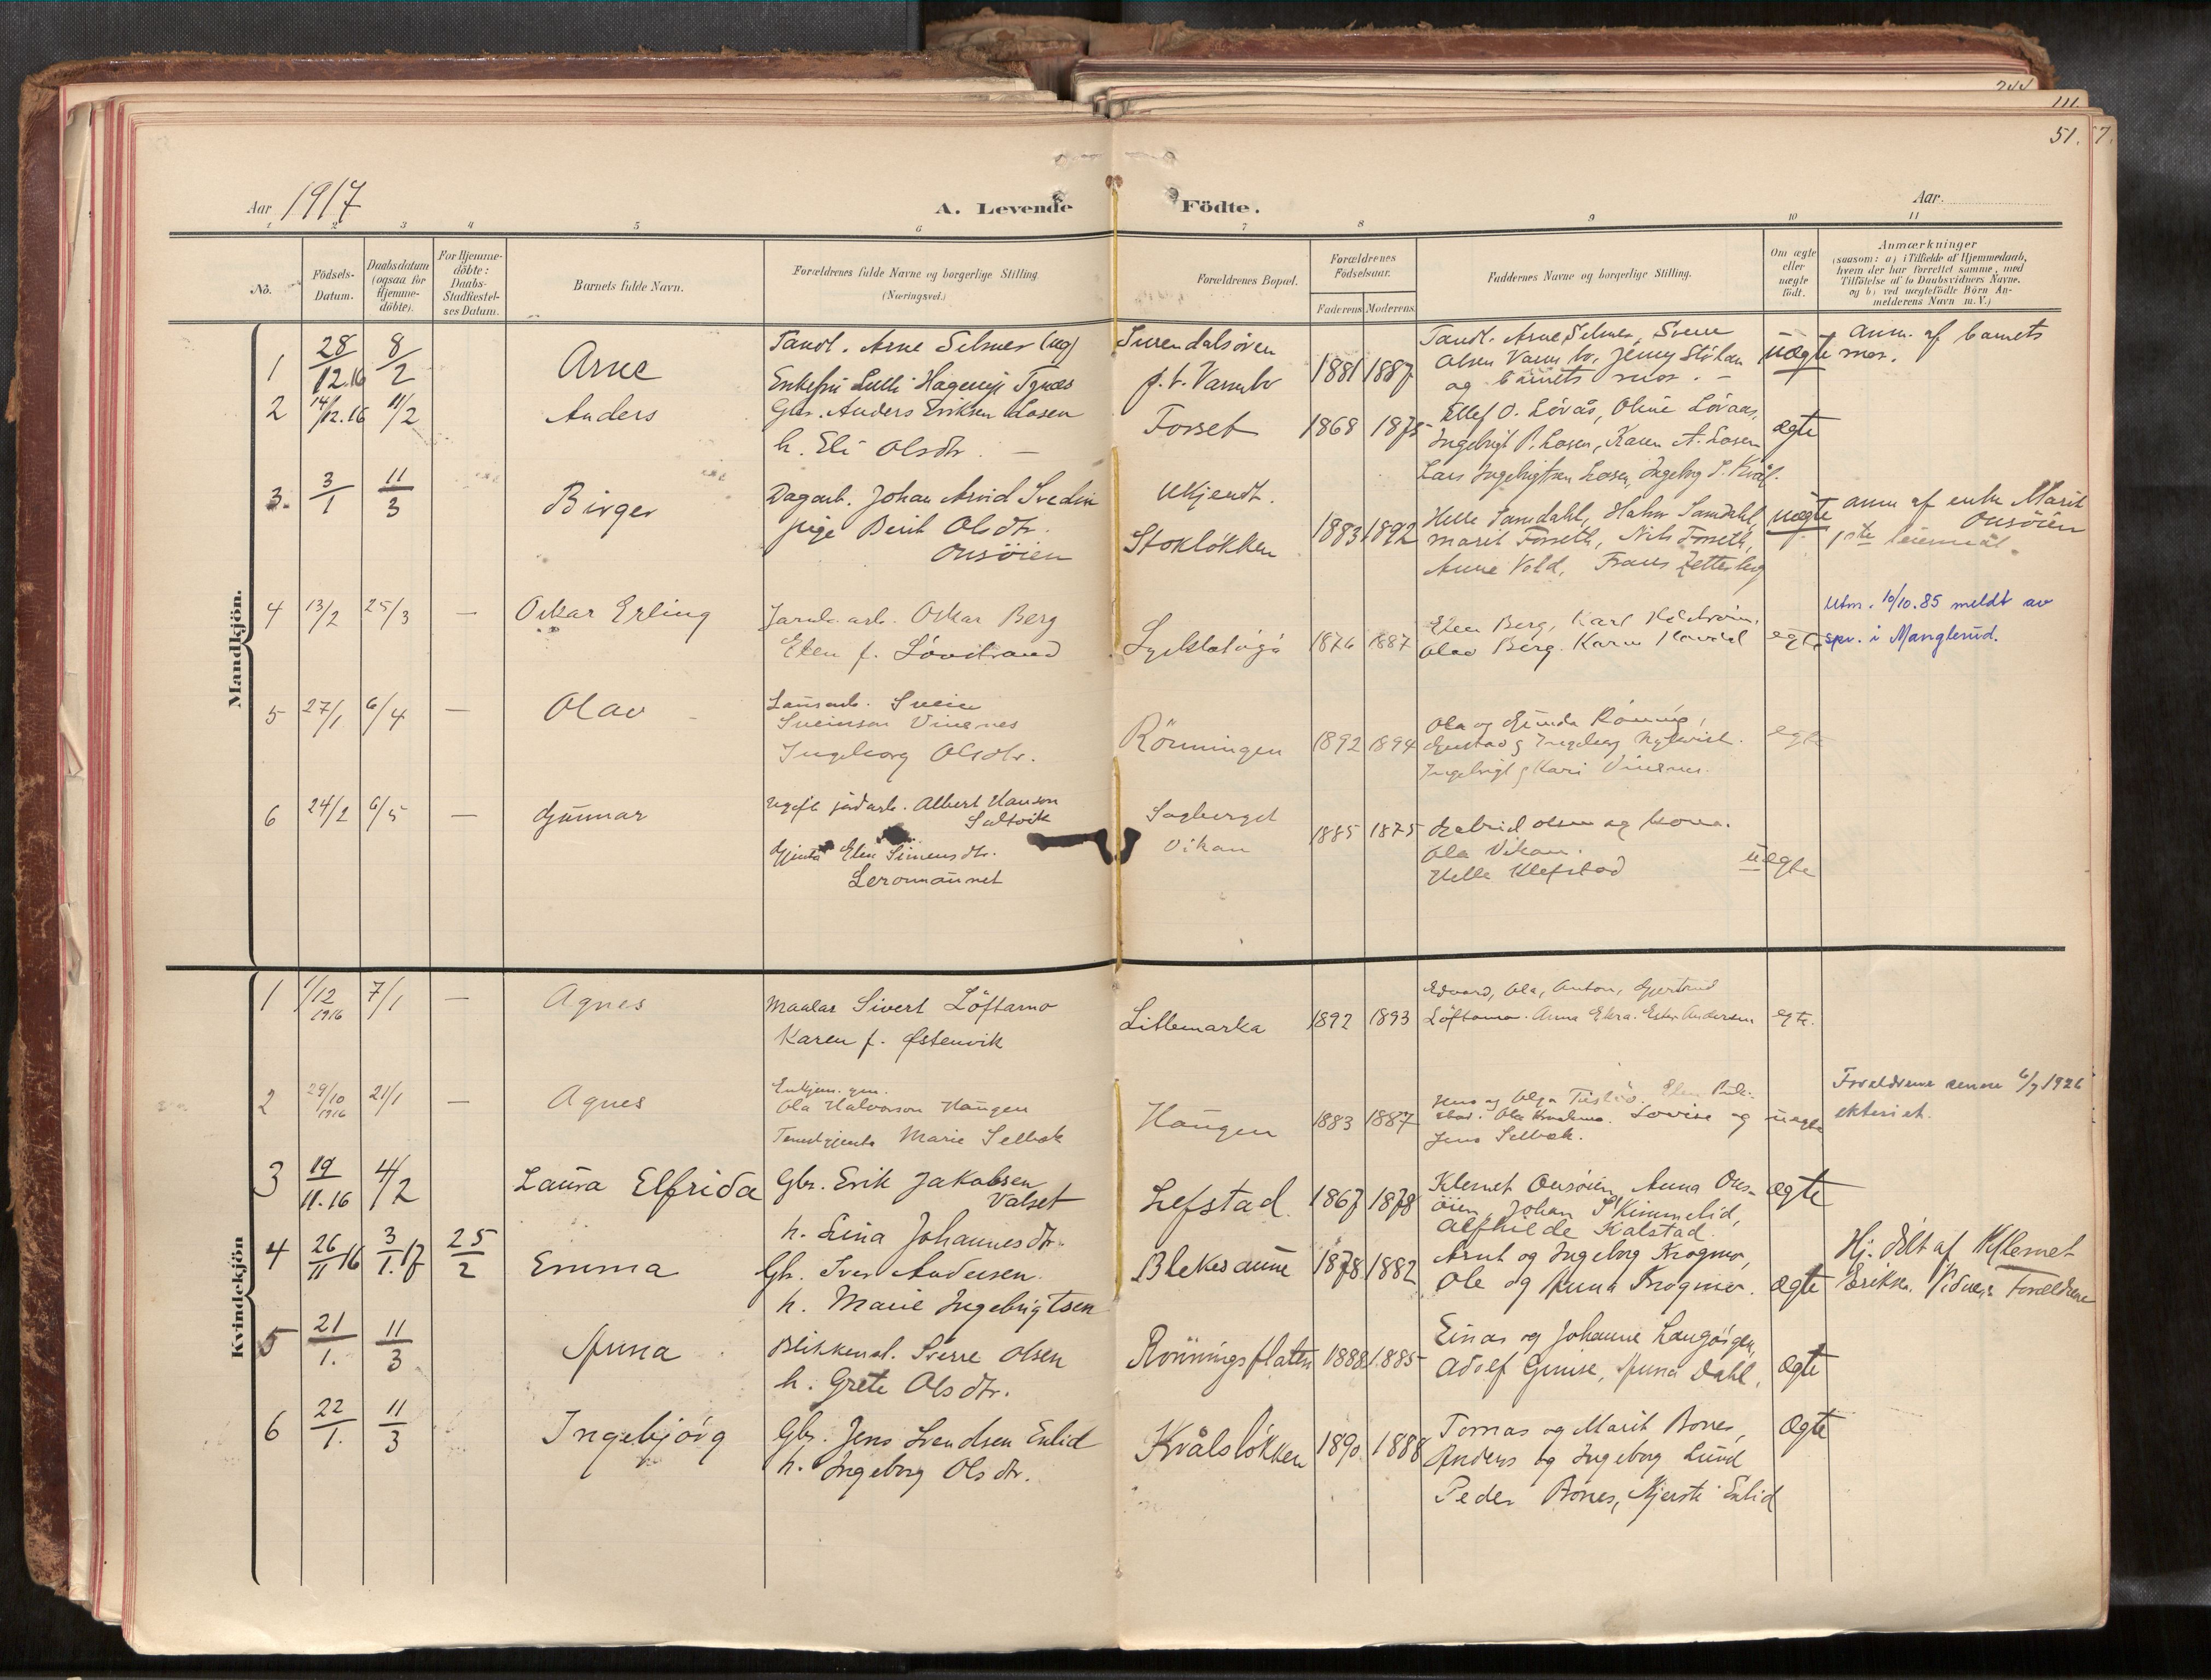 244
111.
51. 7.
Aar 1917
A. Levende Födte.
Aar
1 2 3 4 5 6 7 8 9 10 11
No.
Födsels-Datum.
Daabsdatum (ogsaa for Hjemme-döbte).
For Hjemme-döbte: Daabs-Stadfæstel-ses Datum.
Barnets fulde Navn.
Forældrenes fulde Navne og borgerlige Stilling (Næringsvei.)
Forældrenes Bopæl.
Forældrenes Födselsaar.
Faderens Moderens
Faddernes Navne og borgerlige Stilling.
Om ægte eller uægte födt.
Anmærkninger
(saasom: a) i Tilfælde af Hjemmedaab,
hvem der har forrettet samme, med
Tilföielse af to Daabsvidners Navne,
og b) ved uægtefödte Börn An-
melderens Navn m. V.)
Mandkjön.
1 28/12.16 8/2 Arne
Tandl. Arne Selmer (ug)
Enkefru Lulli Hagenyi Tynæs
Surendalsören
p.t. Varmbo
1881 1887
Tandl. Arne Selmer, Svene
Olsen Varmbo, Jenny Stölan
og barnets mor. —
uægte
anm. af barnets
mor.
2 14/12.16 11/2 Anders
Gbr. Anders Eriksen Losen
h. Eli Olsdtr. —
Forset
1868 1875
Ellef O. Lövås, Oline Lövaas,
Ingebrigt P. Losen, Karen A. Losen
Lars Ingebrigtsen Losen, Ingebrg S. Kvål.
ægte
3. 3/1 11/3 Birger
Dagarb. Johan Arvid Svedin
pige Berit Olsdtr.
Onsöien
Ukjendt.
Stoklökken
1883 1892
Helle Samdahl, Halvor Samdahl,
Marit Forseth, Nils Forseth,
Anne Vold, Frans Zetterberg
uægte
anm af enke Marit
Onsöien
1ste leiermål.
4 13/2 25/3 — Oskar Erling
Jarnb.arb. Oskar Berg
Elen f. Lövstrand
1876 1887
Elen Berg, Karl
Olav Berg. Karen
egte
Utm. 10/10.85 meldt av
spr. i Manglerud.
5 27/1 6/4 — Olav
Lausarb. Svein
Sveinson Vinsnes
Ingeborg Olsdtr.
Rönningen
1892 1894
Ola og Gjunda Rönning,
Gustav og Ingeborg Nykvist.
Ingebrigt og Kari Vinsnes.
egte
6 24/2 6/5 — Gunnar
Ugift jordarb. Albert Hanson
Saltvik
Gjenta Elen Simensdtr.
Leromaunet
Sagberget
Vikan
1885 1875
Gabriel Olsen og kona.
Ola Vikan.
Helle Klefstad
uegte
Kvindekjön
1 1/12 1916 7/1 — Agnes
Maalar Sivert Löftamo
Karen f. Østenvik
Litlemarka
1892 1893
Edvard, Ola, Anton, Gjertrud
Löftamo. Anna Ekra. Ester Andersen
egte.
2 29/10 1916 21/1 — Agnes
Enkjem. gm.
Ola Halvorson Haugen
Tenestgjenta Marie Selbak
Haugen
1883 1887
Jens og Olga
Lovise og
Jens Selbak.
uegte
Foreldrene senere 6/7 1926
ekteviet.
3 19/11.16 4/2 Laura Elfrida
Gbr. Erik Jakobsen
Valset
h. Lina Johannesdtr.
Lefstad.
1867 1878
Klemet Onsöien, Anna Ons-
öien, Johan Skimmelid,
Alfhilde Kalstad.
ægte
4 26/11 16 3/1.17 25/2 Emma
Gbr. Iver Andersen.
h. Marie Ingebrigtsen
Blekesaune
1878 1882
Arnt og Ingeborg Krogmo,
Ole og Anna Krogmo.
ægte
Hj. döbt af Klemet
Eriksen. Vidner: Forældrene
5 21/1. 11/3 Anna
Blikkensl. Sverre Olsen
h. Grete Olsdtr.
Rönningsflaten
1888 1885
Einar og Johanne Langörgen,
Adolf Guuse, Anna Dahl,
ægte
6 22/1. 11/3 Ingebjörg
Gbr. Jens Svendsen Enlid
h. Ingeborg Olsdtr.
Kvålslökken
1890 1888
Tomas og Marit Bones,
Anders og Ingeborg Lund
Peder Bones, Kjersti Enlid
ægte